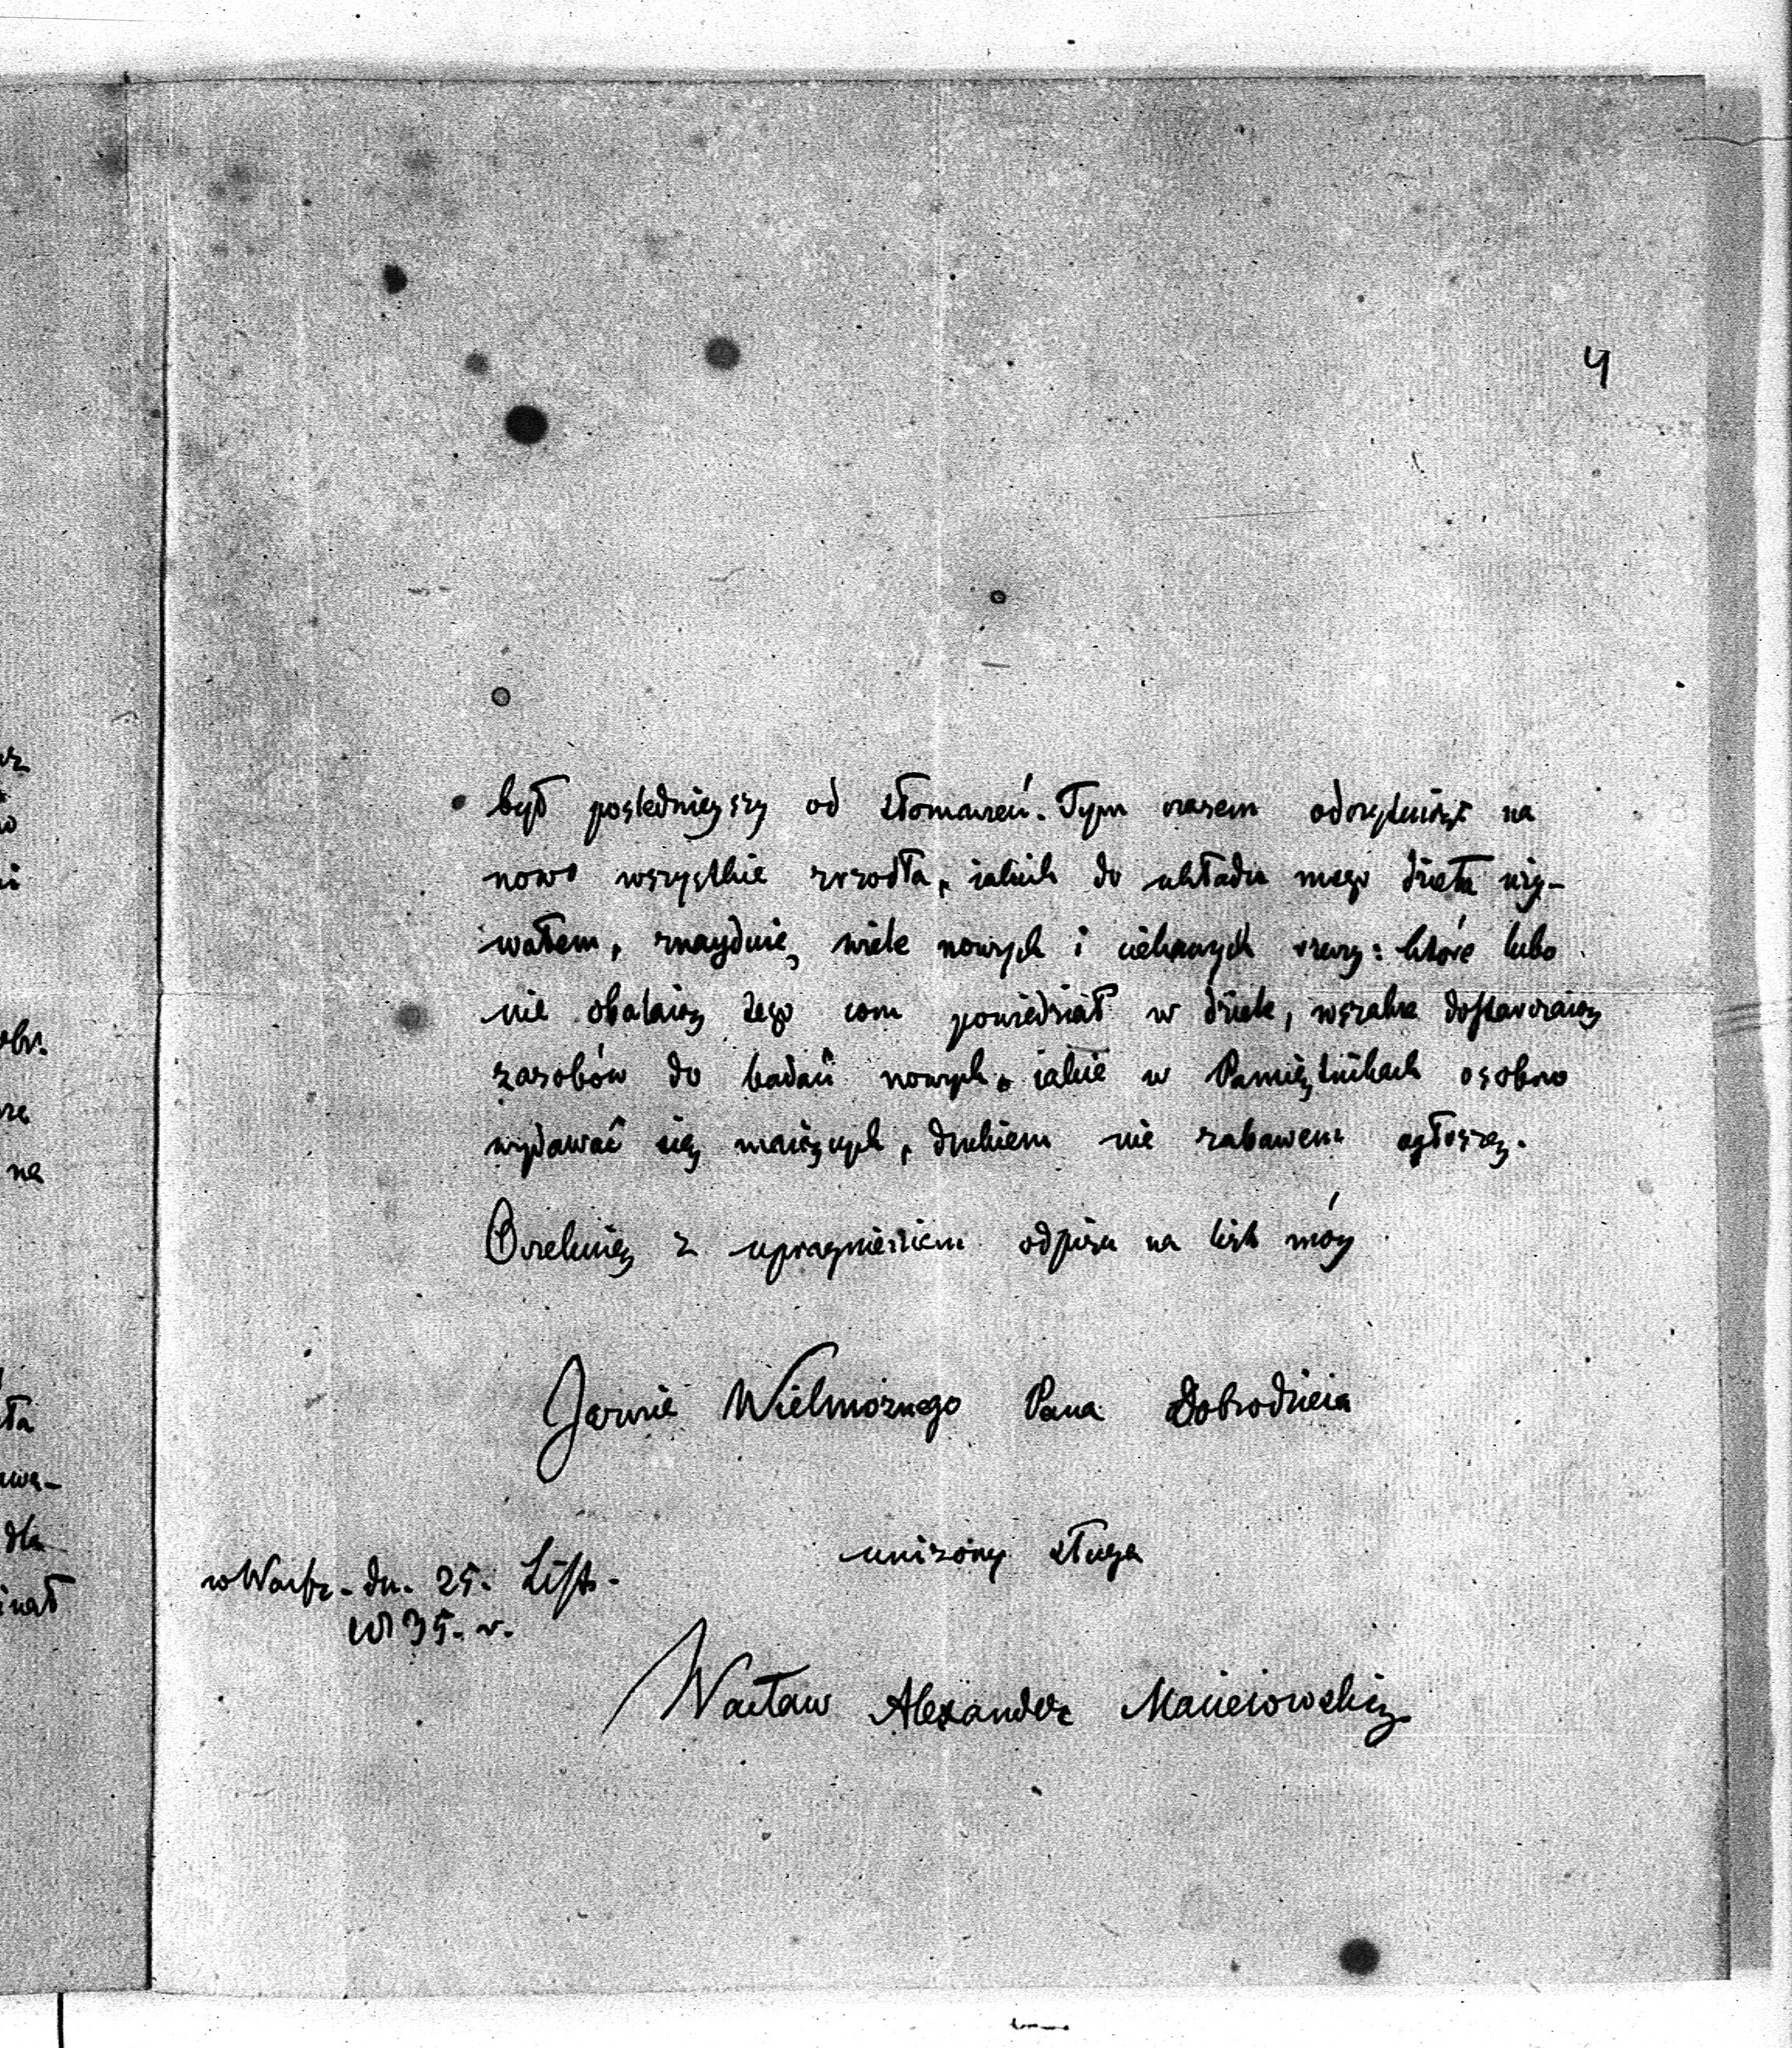 4
był poslednieyszy od tłomaczeń. Tym czasem odczytuiąc na
nowo wszystkie zrzodła, iakich do układu mego dzieła uży-
wałem, znayduię wiele nowych i ciekawych rzeczy: które lubo
nie obalaią tego com powiedział w dziele, wszakże dostarczaią
zasobów do badań nowych, iakie w Pamiętnikach osobno
wydawać się maiących, drukiem nie zabawem ogłoszę.
Oczekuię z upragnieniem odpisu na list móy
Jaśnie Wielmożnego Pana Dobrodzieia
uniżony sługa
w Warsz. dn. 25. List.
1835. r.
Wacław Alexander Macieiowski